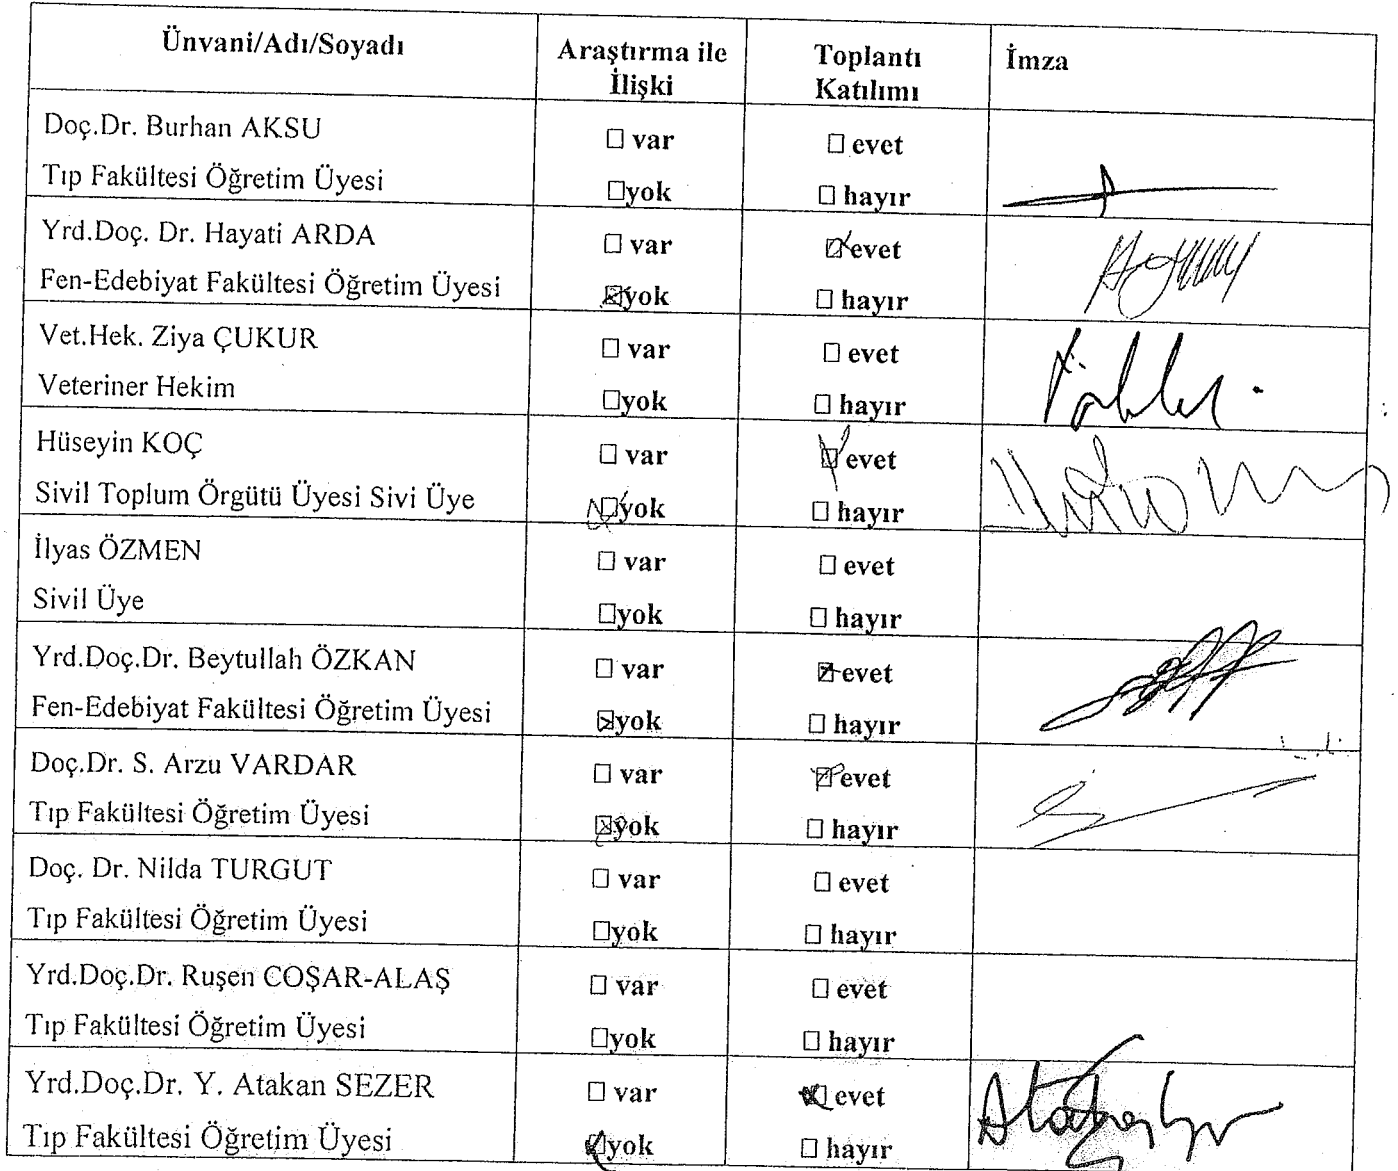 Ünvani/Adı/Soyadı
Araştırma ile
İlişki
Toplantı
Katılımı
İmza
Doç.Dr. Burhan AKSU
Tıp Fakültesi Öğretim Üyesi
☐ var
☐yok
☐ evet
☐ hayır
Yrd.Doç. Dr. Hayati ARDA
Fen-Edebiyat Fakültesi Öğretim Üyesi
☐ var
☒yok
☒evet
☐ hayır
Vet.Hek. Ziya ÇUKUR
Veteriner Hekim
☐ var
☐yok
☐ evet
☐ hayır
Hüseyin KOÇ
Sivil Toplum Örgütü Üyesi Sivi Üye
☐ var
☒yok
☒ evet
☐ hayır
İlyas ÖZMEN
Sivil Üye
☐ var
☐yok
☐ evet
☐ hayır
Yrd.Doç.Dr. Beytullah ÖZKAN
Fen-Edebiyat Fakültesi Öğretim Üyesi
☐ var
☒yok
☒evet
☐ hayır
Doç.Dr. S. Arzu VARDAR
Tıp Fakültesi Öğretim Üyesi
☐ var
☒yok
☒evet
☐ hayır
Doç. Dr. Nilda TURGUT
Tıp Fakültesi Öğretim Üyesi
☐ var
☐yok
☐ evet
☐ hayır
Yrd.Doç.Dr. Ruşen COŞAR-ALAŞ
Tıp Fakültesi Öğretim Üyesi
☐ var
☐yok
☐ evet
☐ hayır
Yrd.Doç.Dr. Y. Atakan SEZER
Tıp Fakültesi Öğretim Üyesi
☐ var
☒yok
☒ evet
☐ hayır